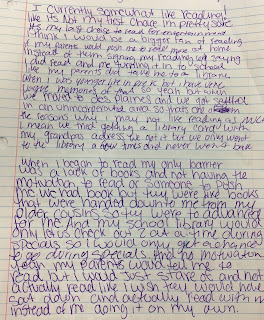 I currently somewhat like reading!
like its not my first choice im pretty sure
its my last choice to read for entertainment
I think I would be a bigger fan of reading
if my parents would push me to read more at home
instead of them signing my reading log saying
i did read and me turning it in to school
like my parents did take me to a library
when I was younger like in pre k but I have little
vague memories of that so yeah but when
we moved to des plaines and we got settled
in an unincorporated area so thats one of
the reasons why I may not like reading as much
I mean we tried getting a library card with
my grandpas address we got it but we only went
to the library a few times and never went back

When I began to read my only barrier
was a lack of books and not having the
motivation to read or someone to push
me we had book but they were like books
that were handed down to me from my
older cousins so they were to advanced
for me. And my school library would
only let us check out 2 at a time during
specials so I would only get a chance
to go during specials. And no motivation
yeah my parents would tell me to
read but I would just stare and not
actually read like I wish they would have
sat down and actually read with me
instead of me doing it on my own.